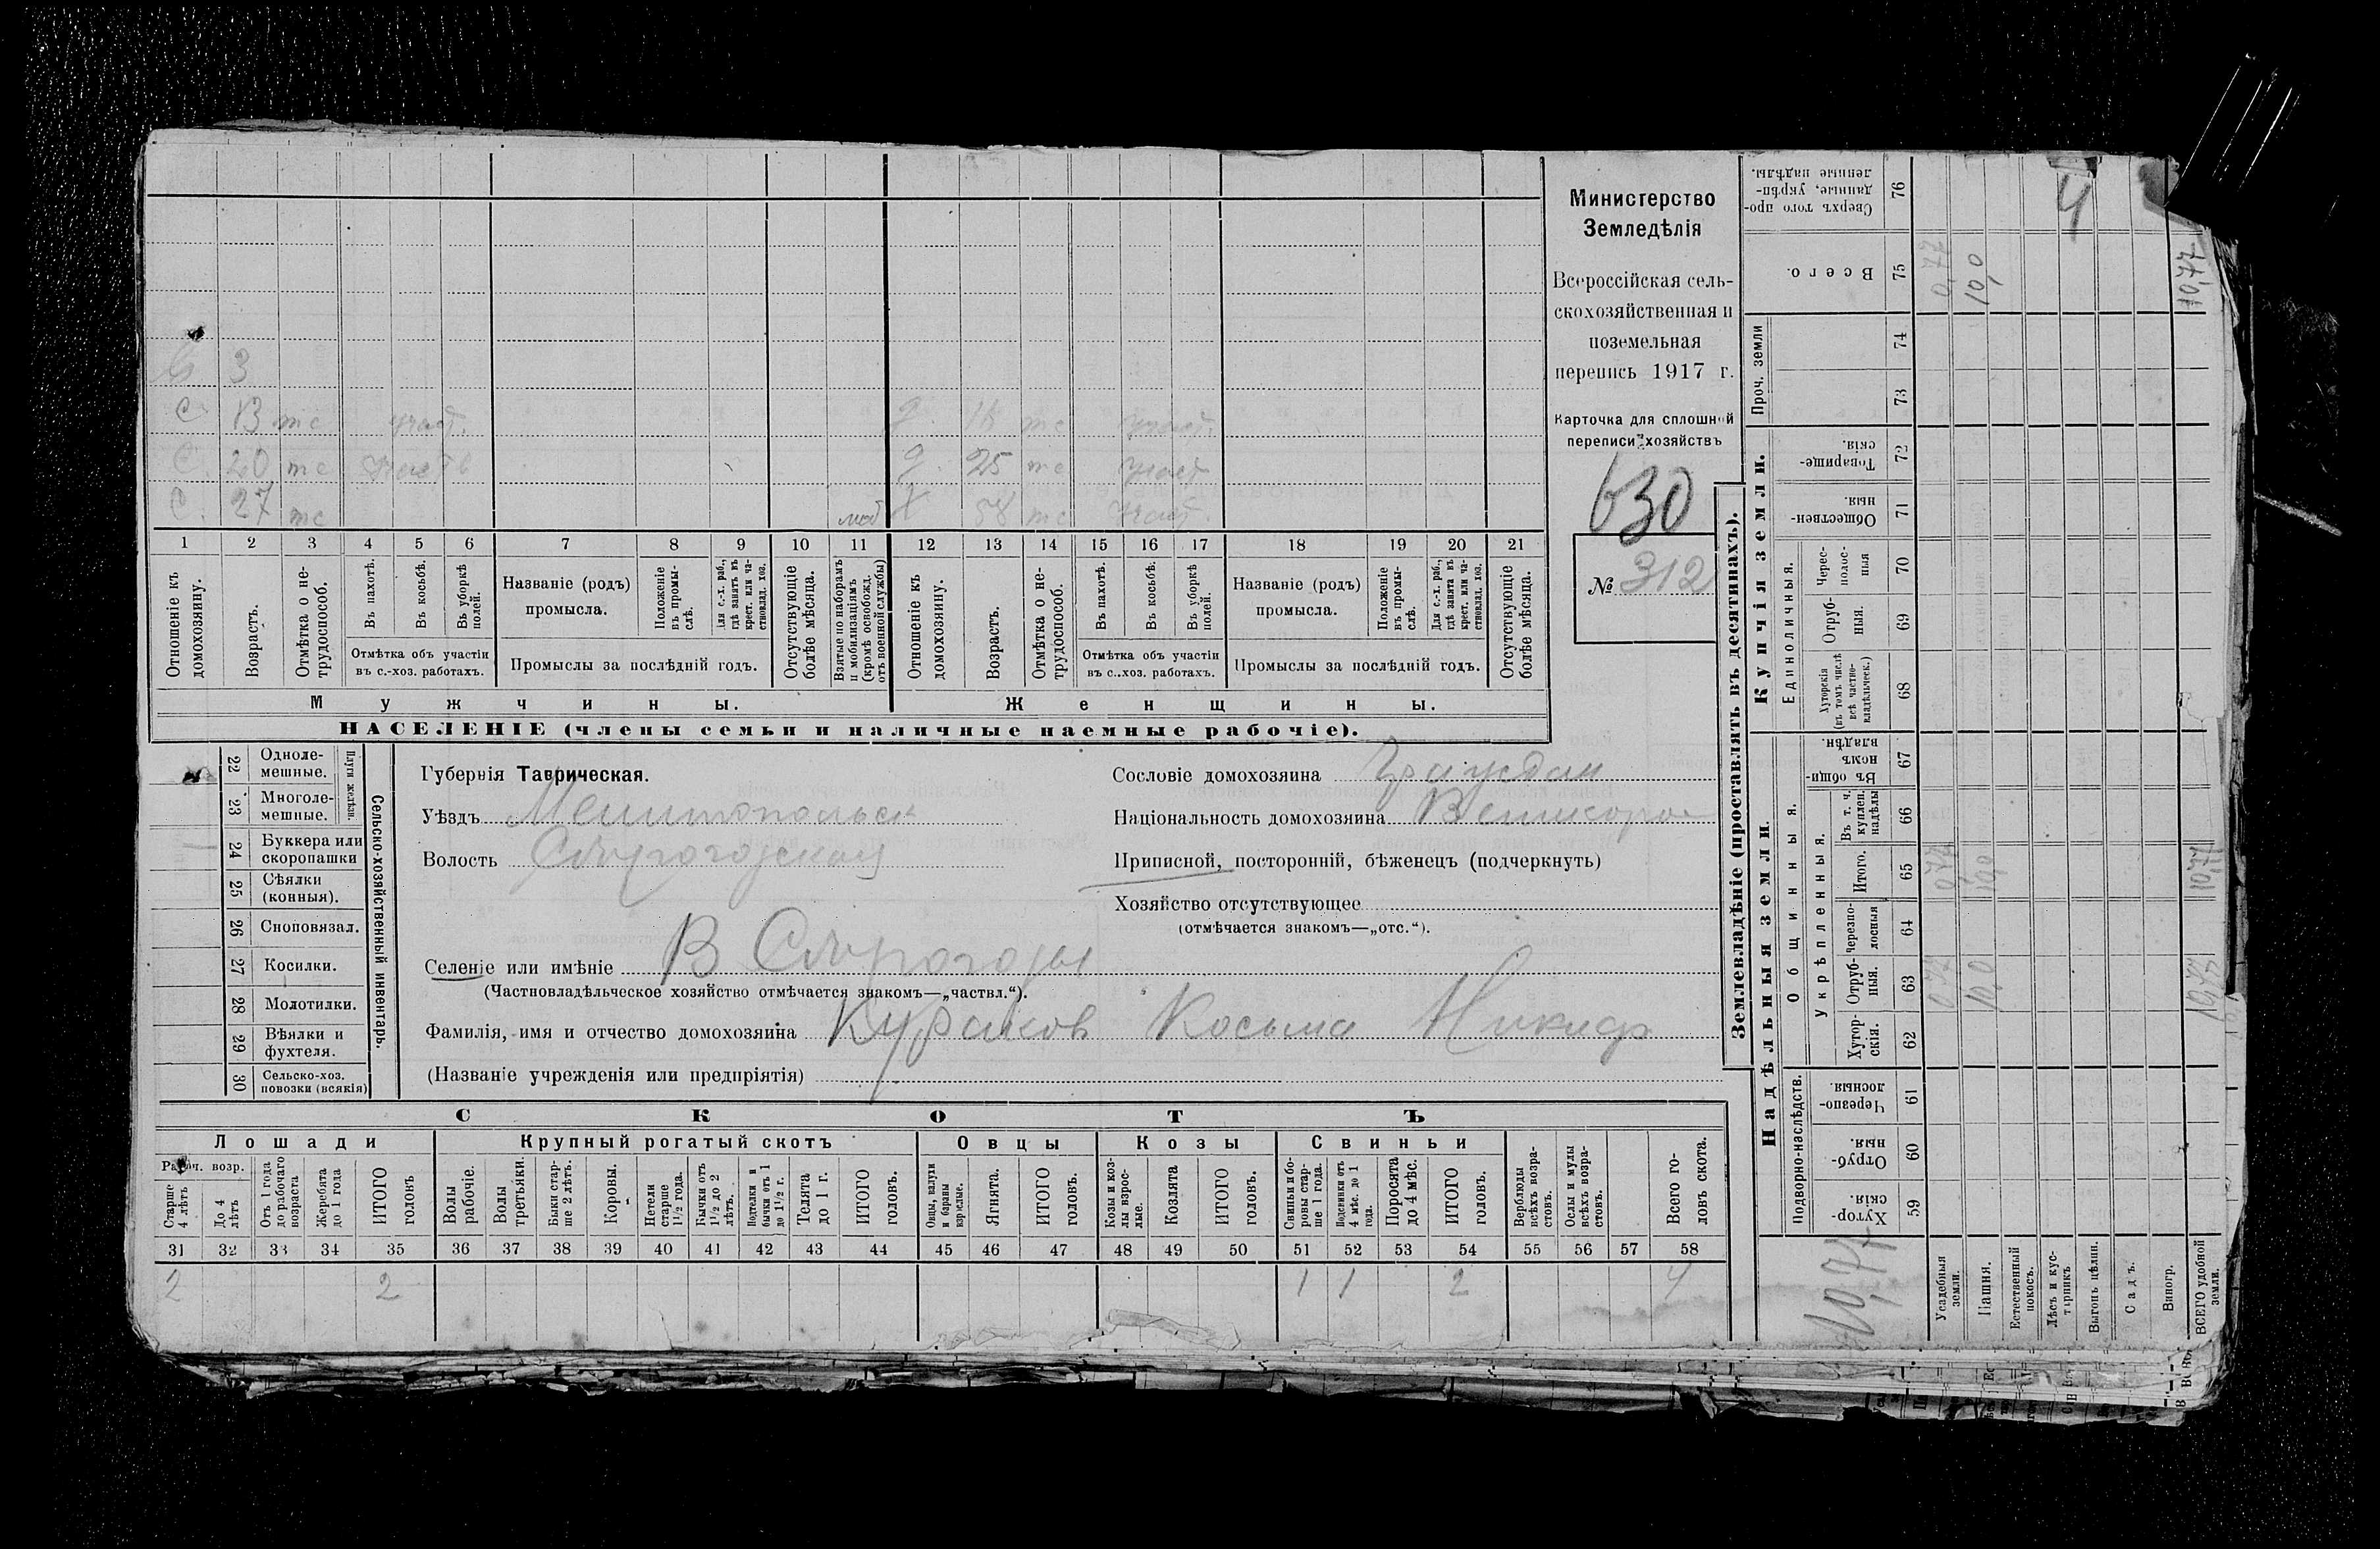 Министерство
Земледѣлія
Всероссійская сель-
скохозяйственная и
поземельная
перепись 1917 г.
Карточка для сплошной
переписи хозяйствъ
630
№ 312
3
С 13 участ.
С. 20
С. 27
25
58
1 2 3 4 5 6 7 8 9 10 11 12 13 14 15 16 17 18 19 20 21
Отношеніе къ домохозяину.
Возрастъ.
Отмѣтка о не-трудоспособ.
Въ пахотѣ.
Въ косьбѣ.
Въ уборкѣ полей.
Отмѣтка объ участіи
въ с.-хоз. работахъ.
Названіе (родъ)
промысла.
Положеніе въ промы-слѣ.
Для с.-х. раб., гдѣ занятъ въ крест. или ча-стновлад. хоз.
Промыслы за послѣдній годъ.
Отсутствующіе болѣе мѣсяца.
Взятые по наборамъ и мобилизаціямъ (кромѣ освобожд. отъ военной службы)
Отношеніе къ домохозяину.
Возрастъ.
Отмѣтка о не-трудоспособ.
Въ пахотѣ.
Въ косьбѣ.
Въ уборкѣ полей.
Отмѣтка объ участіи
въ с.-хоз. работахъ.
Названіе (родъ)
промысла.
Положеніе въ промы-слѣ.
Для с.-х. раб., гдѣ занята въ крест. или ча-стновлад. хоз.
Промыслы за послѣдній годъ.
Отсутствующіе болѣе мѣсяца.
Мужчины. Женщины.
НАСЕЛЕНІЕ (члены семьи и наличные наемные рабочіе).
22 Одноле-мешные.
23 Многоле-мешные.
Плуги желѣзн.
24 Буккера или скоропашки
25 Сѣялки (конныя).
26 Сноповязал.
27 Косилки.
28 Молотилки.
29 Вѣялки и фухтеля.
30 Сельско-хоз. повозки (всякія)
Сельско-хозяйственный инвентарь.
Губернія Таврическая.
Уѣздъ Мелитопольск
Волость
Селеніе или имѣніе В
(Частновладѣльческое хозяйство отмѣчается знакомъ—„частвл.“).
Фамилія, имя и отчество домохозяина Косьма Никиф
(Названіе учрежденія или предпріятія)
Сословіе домохозяина Граждан
Національность домохозяина Великорос
Приписной, посторонній, бѣженецъ (подчеркнуть)
Хозяйство отсутствующее
(отмѣчается знакомъ—„отс.“).
СКОТЪ
Лошади Крупный рогатый скотъ Овцы Козы Свиньи
Рабоч. возр.
Старше 4 лѣтъ
До 4 лѣтъ
Отъ 1 года до рабочаго возраста
Жеребята до 1 года
ИТОГО головъ
Волы рабочіе.
Волы третьяки.
Быки стар-ше 2 лѣтъ.
Коровы.
Нетели старше 1½ года.
Бычки отъ 1½ до 2 лѣтъ.
Подтелки и бычки отъ 1 до 1½ г.
Телята до 1 г.
ИТОГО головъ.
Овцы, валухи и бараны взрослые.
Ягнята.
ИТОГО головъ.
Козы и коз-лы взрос-лые.
Козлята
ИТОГО головъ.
Свиньи и бо-ровы стар-ше 1 года.
Подсвинки отъ 4 мѣс. до 1 года.
Поросята до 4 мѣс.
ИТОГО головъ.
Верблюды всѣхъ возра-стовъ.
Ослы и мулы всѣхъ возра-стовъ.
Всего го-ловъ скота.
31 32 33 34 35 36 37 38 39 40 41 42 43 44 45 46 47 48 49 50 51 52 53 54 55 56 57 58
2 2 1 1 2 4
Землевладѣніе (проставлять въ десятинахъ).
Купчія земли.
Надѣльныя земли
Проч. земли
Единоличныя.
Общинныя.
Укрѣпленныя.
Подворно-наслѣдств.
76 Сверхъ того про-данные, укрѣп-ленные надѣлы.
75 Всего. 0,77 10,0 10,77
74
73
72 Товарище-скія.
71 Обществен-ныя
70 Черес-полос-ныя
69 Отруб-ныя.
68 Хуторскія (въ томъ числѣ всѣ частно-владѣльческ.)
67 Въ общин-номъ владѣн.
66 Въ т. ч. куплен. надѣлы
65 Итого. 0,77 10,0 10,77
64 Черезпо-лосныя
63 Отруб-ныя. 10,0 10,77
62 Хутор-скія.
61 Черезпо-лосныя.
60 Отруб-ныя.
59 Хутор-скія.
4
10,77
Усадебныя земли.
Пашня.
Естественный покосъ.
Лѣсъ и кус-тарникъ
Выгонъ цѣлин.
Садъ.
Виногр.
ВСЕГО удобной земли.